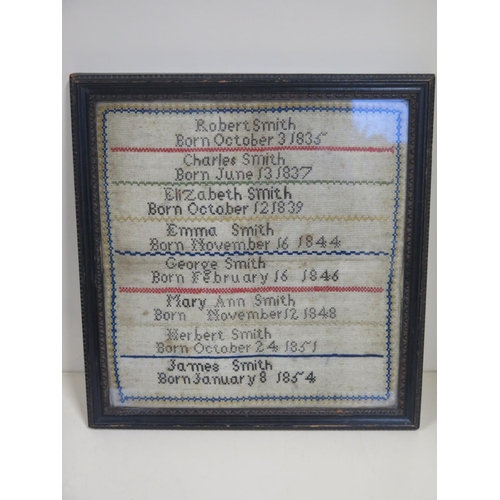 Robert Smith
Born October 3 1835
Charles Smith
Born June 13 1837
Elizabeth Smith
Born October 12 1839
Emma Smith
Born November 16 1844
George Smith
Born February 16 1846
Mary Ann Smith
Born November 12 1848
Herbert Smith
Born October 24 1851
James Smith
Born January 8 1854